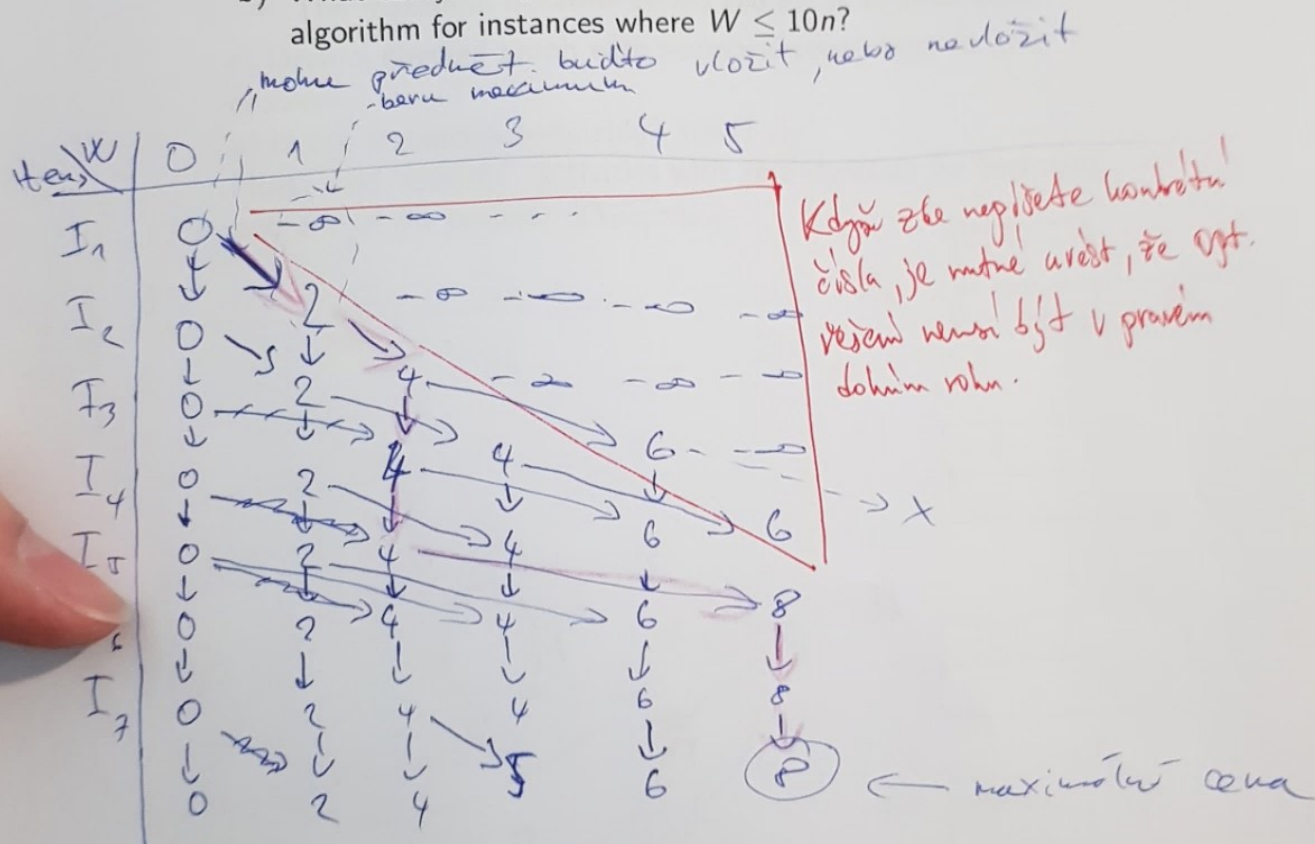 algorithm for instances where W ≤ 10n?
mohu předmět buďto vložit, nebo nevložit
- beru maximum
Items W 0 1 2 3 4 5
I1 0 -∞ -∞ - - -
I2 0 2 -∞ -∞ -∞ -∞
I3 0 2 4 -∞ -∞ -∞
I4 0 2 4 4 6 -∞
I5 0 2 4 4 6 6
0 2 4 4 6 8
I7 0 2 4 4 6 8
0 2 4 5 6 8 ← maximální cena
x
Když zde nepíšete konkrétní
čísla, je nutné uvést, že opt.
řešení nemusí být v pravém
dolním rohu.